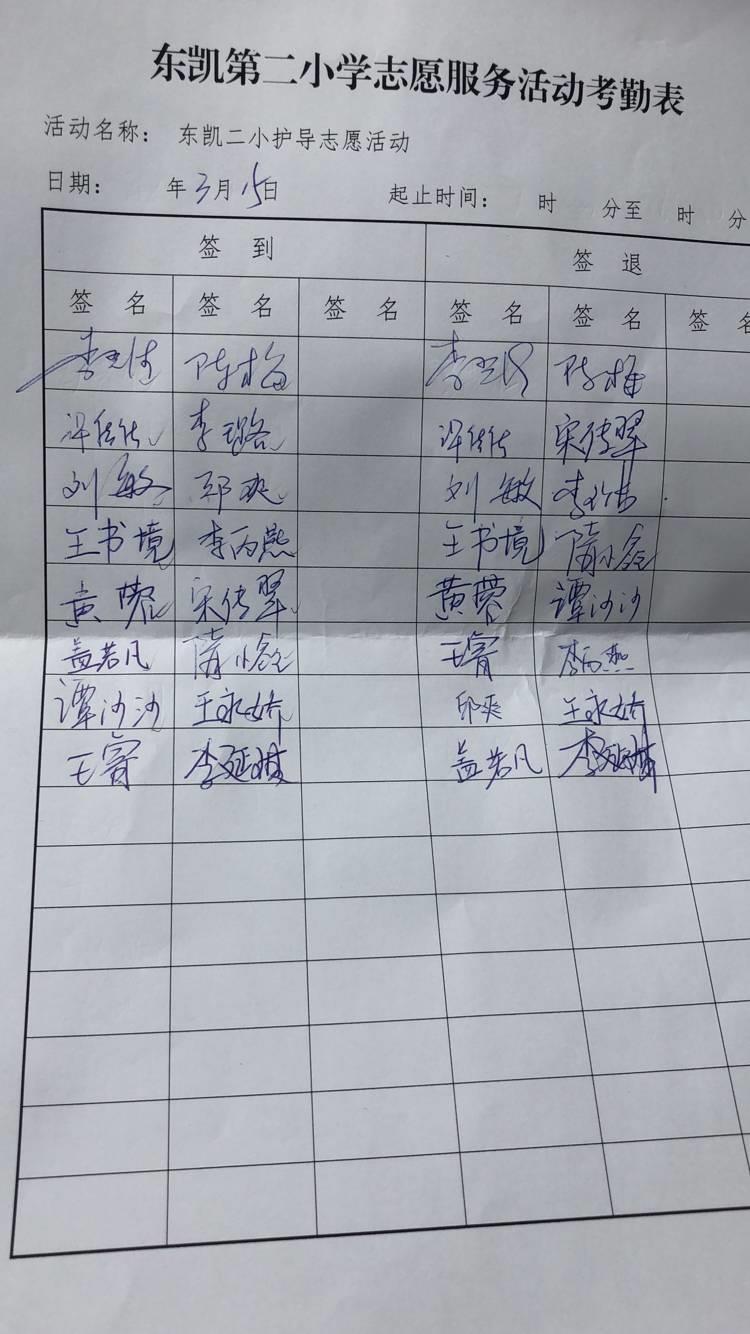 东凯第二小学志愿服务活动考勤表
活动名称： 东凯二小护导志愿活动
日期： 年3月15日 起止时间： 时 分至 时 分
签 到 签 退
签 名 签 名 签 名 签 名 签 名 签 名
陈梅 陈梅
李璐 宋传翠
刘敏 郑爽 刘敏
王书境 李丙燕 王书境 隋小
黄蓉 宋传翠 黄蓉 谭沙沙
盖若凡 隋小 王睿 李丙燕
谭沙沙 王永娇 邱爽 王永娇
王睿 李延 盖若凡 李延